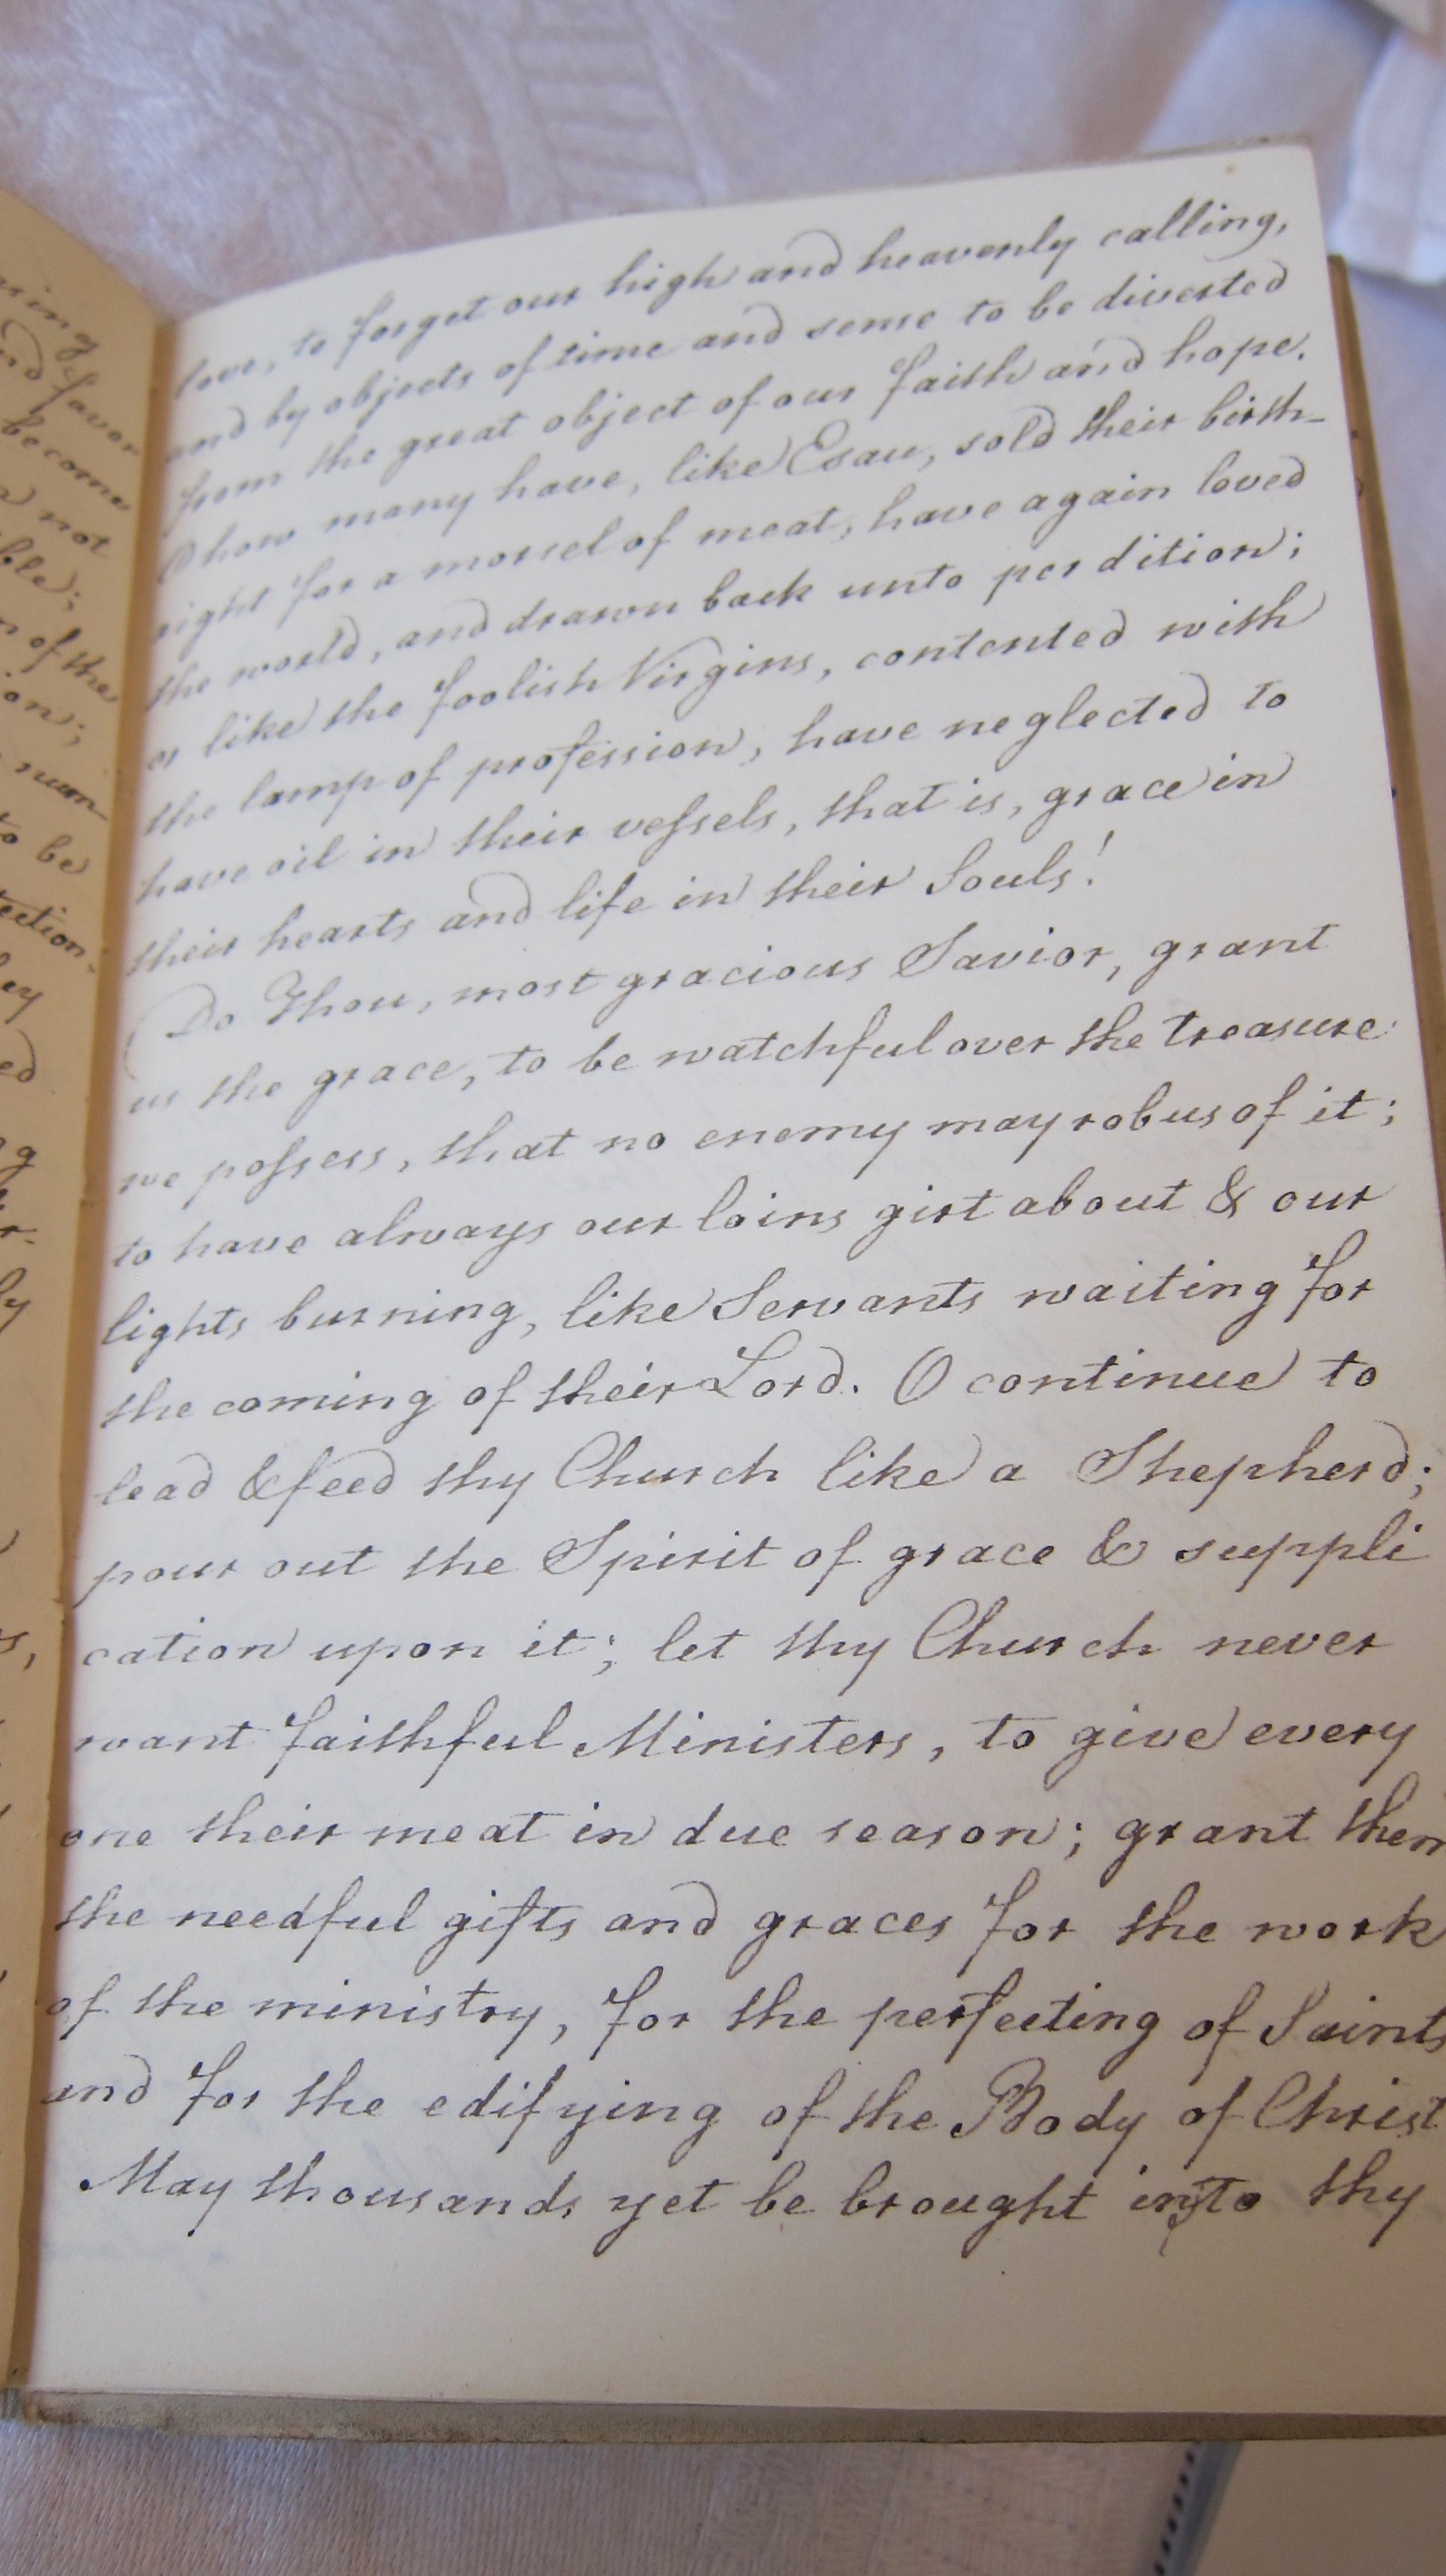 sing
nd favor
become
not
ble;
n of the
on;
num
to be
tection.
ey
ed
g
r.
ly
s,
love, to forget our high and heavenly calling,
and by objects of time and sense to be diverted
from the great object of our faith and hope.
O how many have, like Esau, sold their birth-
right for a morsel of meat, have again loved
the world, and drawn back unto perdition;
or like the foolish Virgins, contented with
the lamp of profession, have neglected to
have oil in their veſsels, that is, grace in
their hearts and life in their Souls!
Do Thou, most gracious Savior, grant
us the grace, to be watchful over the treasure
we poſsess, that no enemy may rob us of it;
to have always our loins girt about & our
lights burning, like Servants waiting for
the coming of their Lord. O continue to
lead & feed thy Church like a Shepherd;
pour out the Spirit of grace & suppli
cation upon it; let thy Church never
want faithful Ministers, to give every
one their meat in due season; grant them
the needful gifts and graces for the work
of the ministry, for the perfecting of Saints
and for the edifying of the Body of Christ
May thousands yet be brought into thy